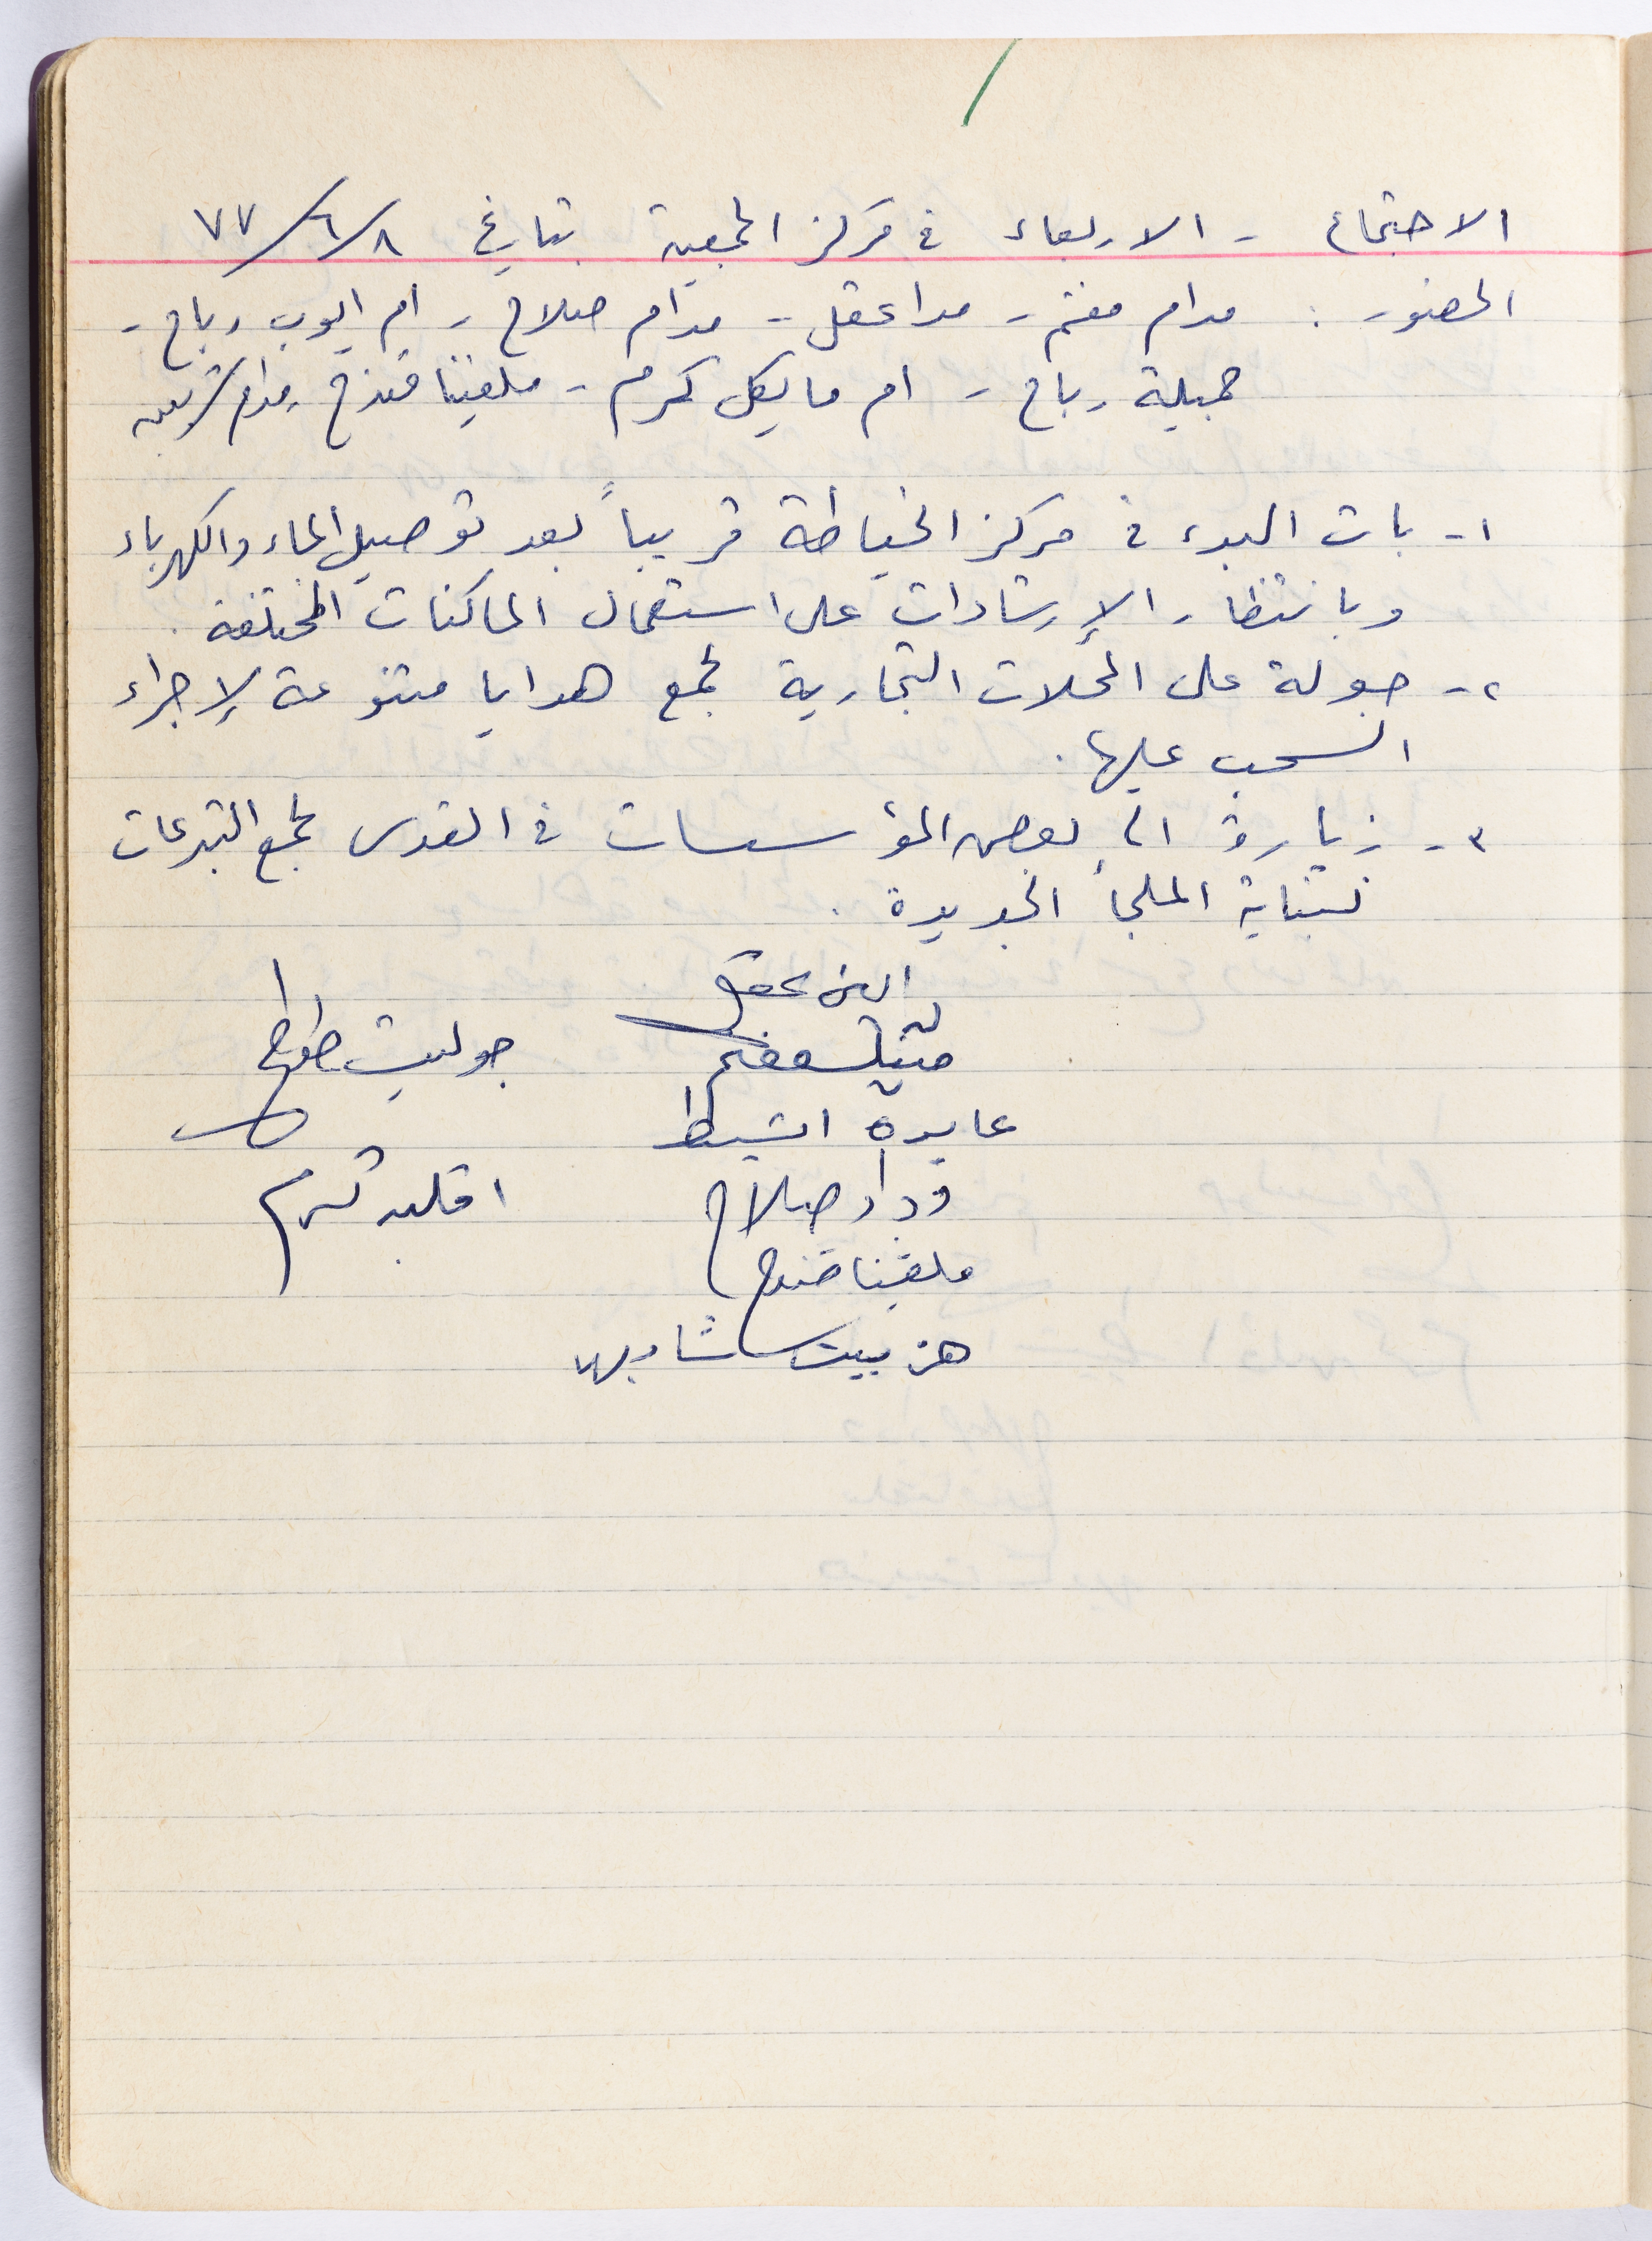 الاجتماع - الاربعاء في مركز الجمعية بتاريخ ٨/٦/٧٧
الحضور : مدام مغنم - مدا عقل - مدام صلاح - ام ايوب رباح -
جميلة رباح - ام مايكل كرم - ملفينا قندح - مدام
١- بات البدء في مركز الخياطة قريباً بعد توصيل الماء والكهرباء
وبانتظار الإرشادات على استعمال الماكنات المختلفة .
٢- جولة على المحلات التجارية لجمع هدايا متنوعة لإجراء
السحب عليها .
٣- زيارة الى بعض المؤسسات في القدس لجمع التبرعات
لبناية الملجأ الجديدة .
عقل
مغنم
جوليت
عايدة
وداد صلاح
كرم
ملفينا قندح